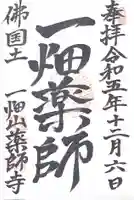 奉拝令和五年十二月六日
一畑薬師
佛国土
一畑山薬師寺